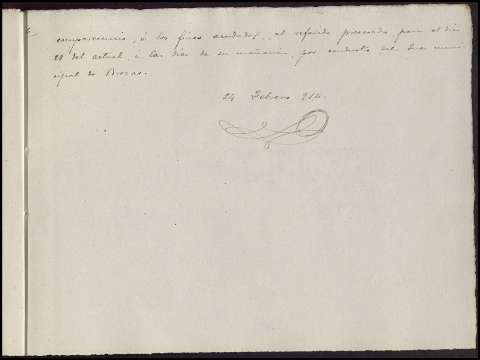 comparecencia, á los fines acordados, al referido procesado, para el dia
28 del actual, á las diez de su mañana, por conducto del Juez muni
cipal de Brozas.
24 Febrero 914.